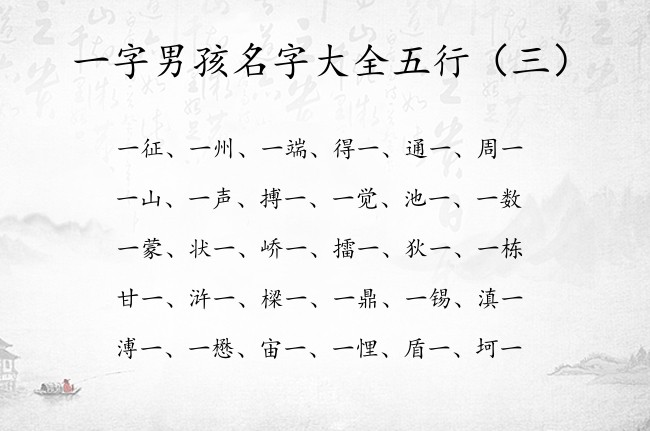 一字男孩名字大全五行（三）
一征、一州、一端、得一、通一、周一
一山、一声、搏一、一觉、池一、一数
一蒙、状一、峤一、擂一、狄一、一栋
甘一、浒一、樑一、一鼎、一锡、滇一
溥一、一懋、宙一、一悝、盾一、坷一